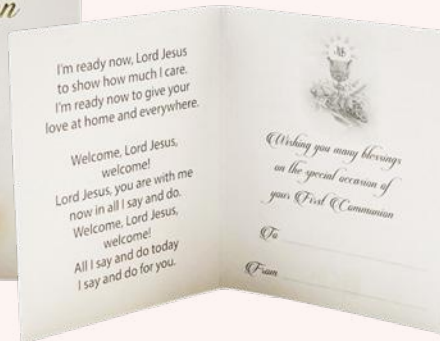 n
I'm ready now, Lord Jesus
to show how much I care.
I'm ready now to give your
love at home and everywhere.
Welcome, Lord Jesus,
welcome!
Lord Jesus, you are with me
now in all I say and do.
Welcome, Lord Jesus,
welcome!
All I say and do today
I say and do for you.
Wishing you many blessings
on the special occasion of
your First Communion
To
From